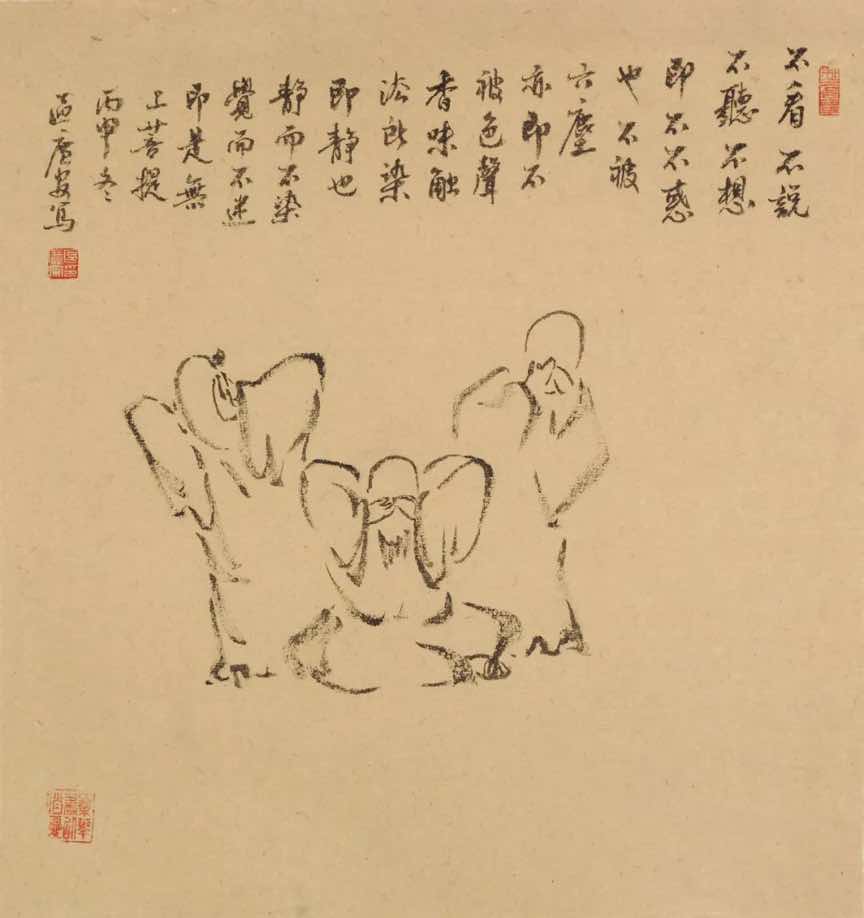 不看不說
不聽不想
即不不惑
也不被
六塵
亦即不
被色聲
香味触
法所染
即静也
静而不染
覺而不迷
即是無
上菩提
丙申冬
區廣安寫